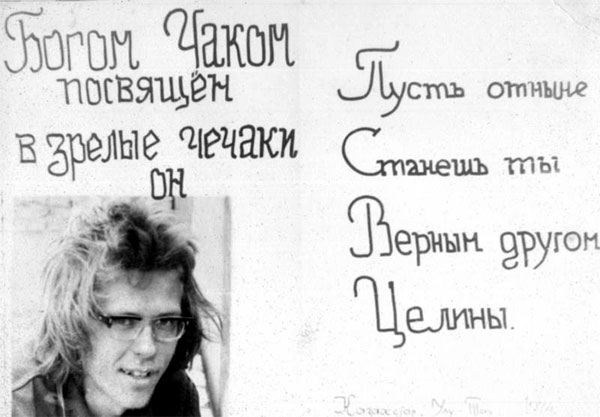 Богом Чаком
посвящён
в зрелые чечаки
он
Пусть отныне
Станешь ты
Верным другом
Целины.
Казахстан